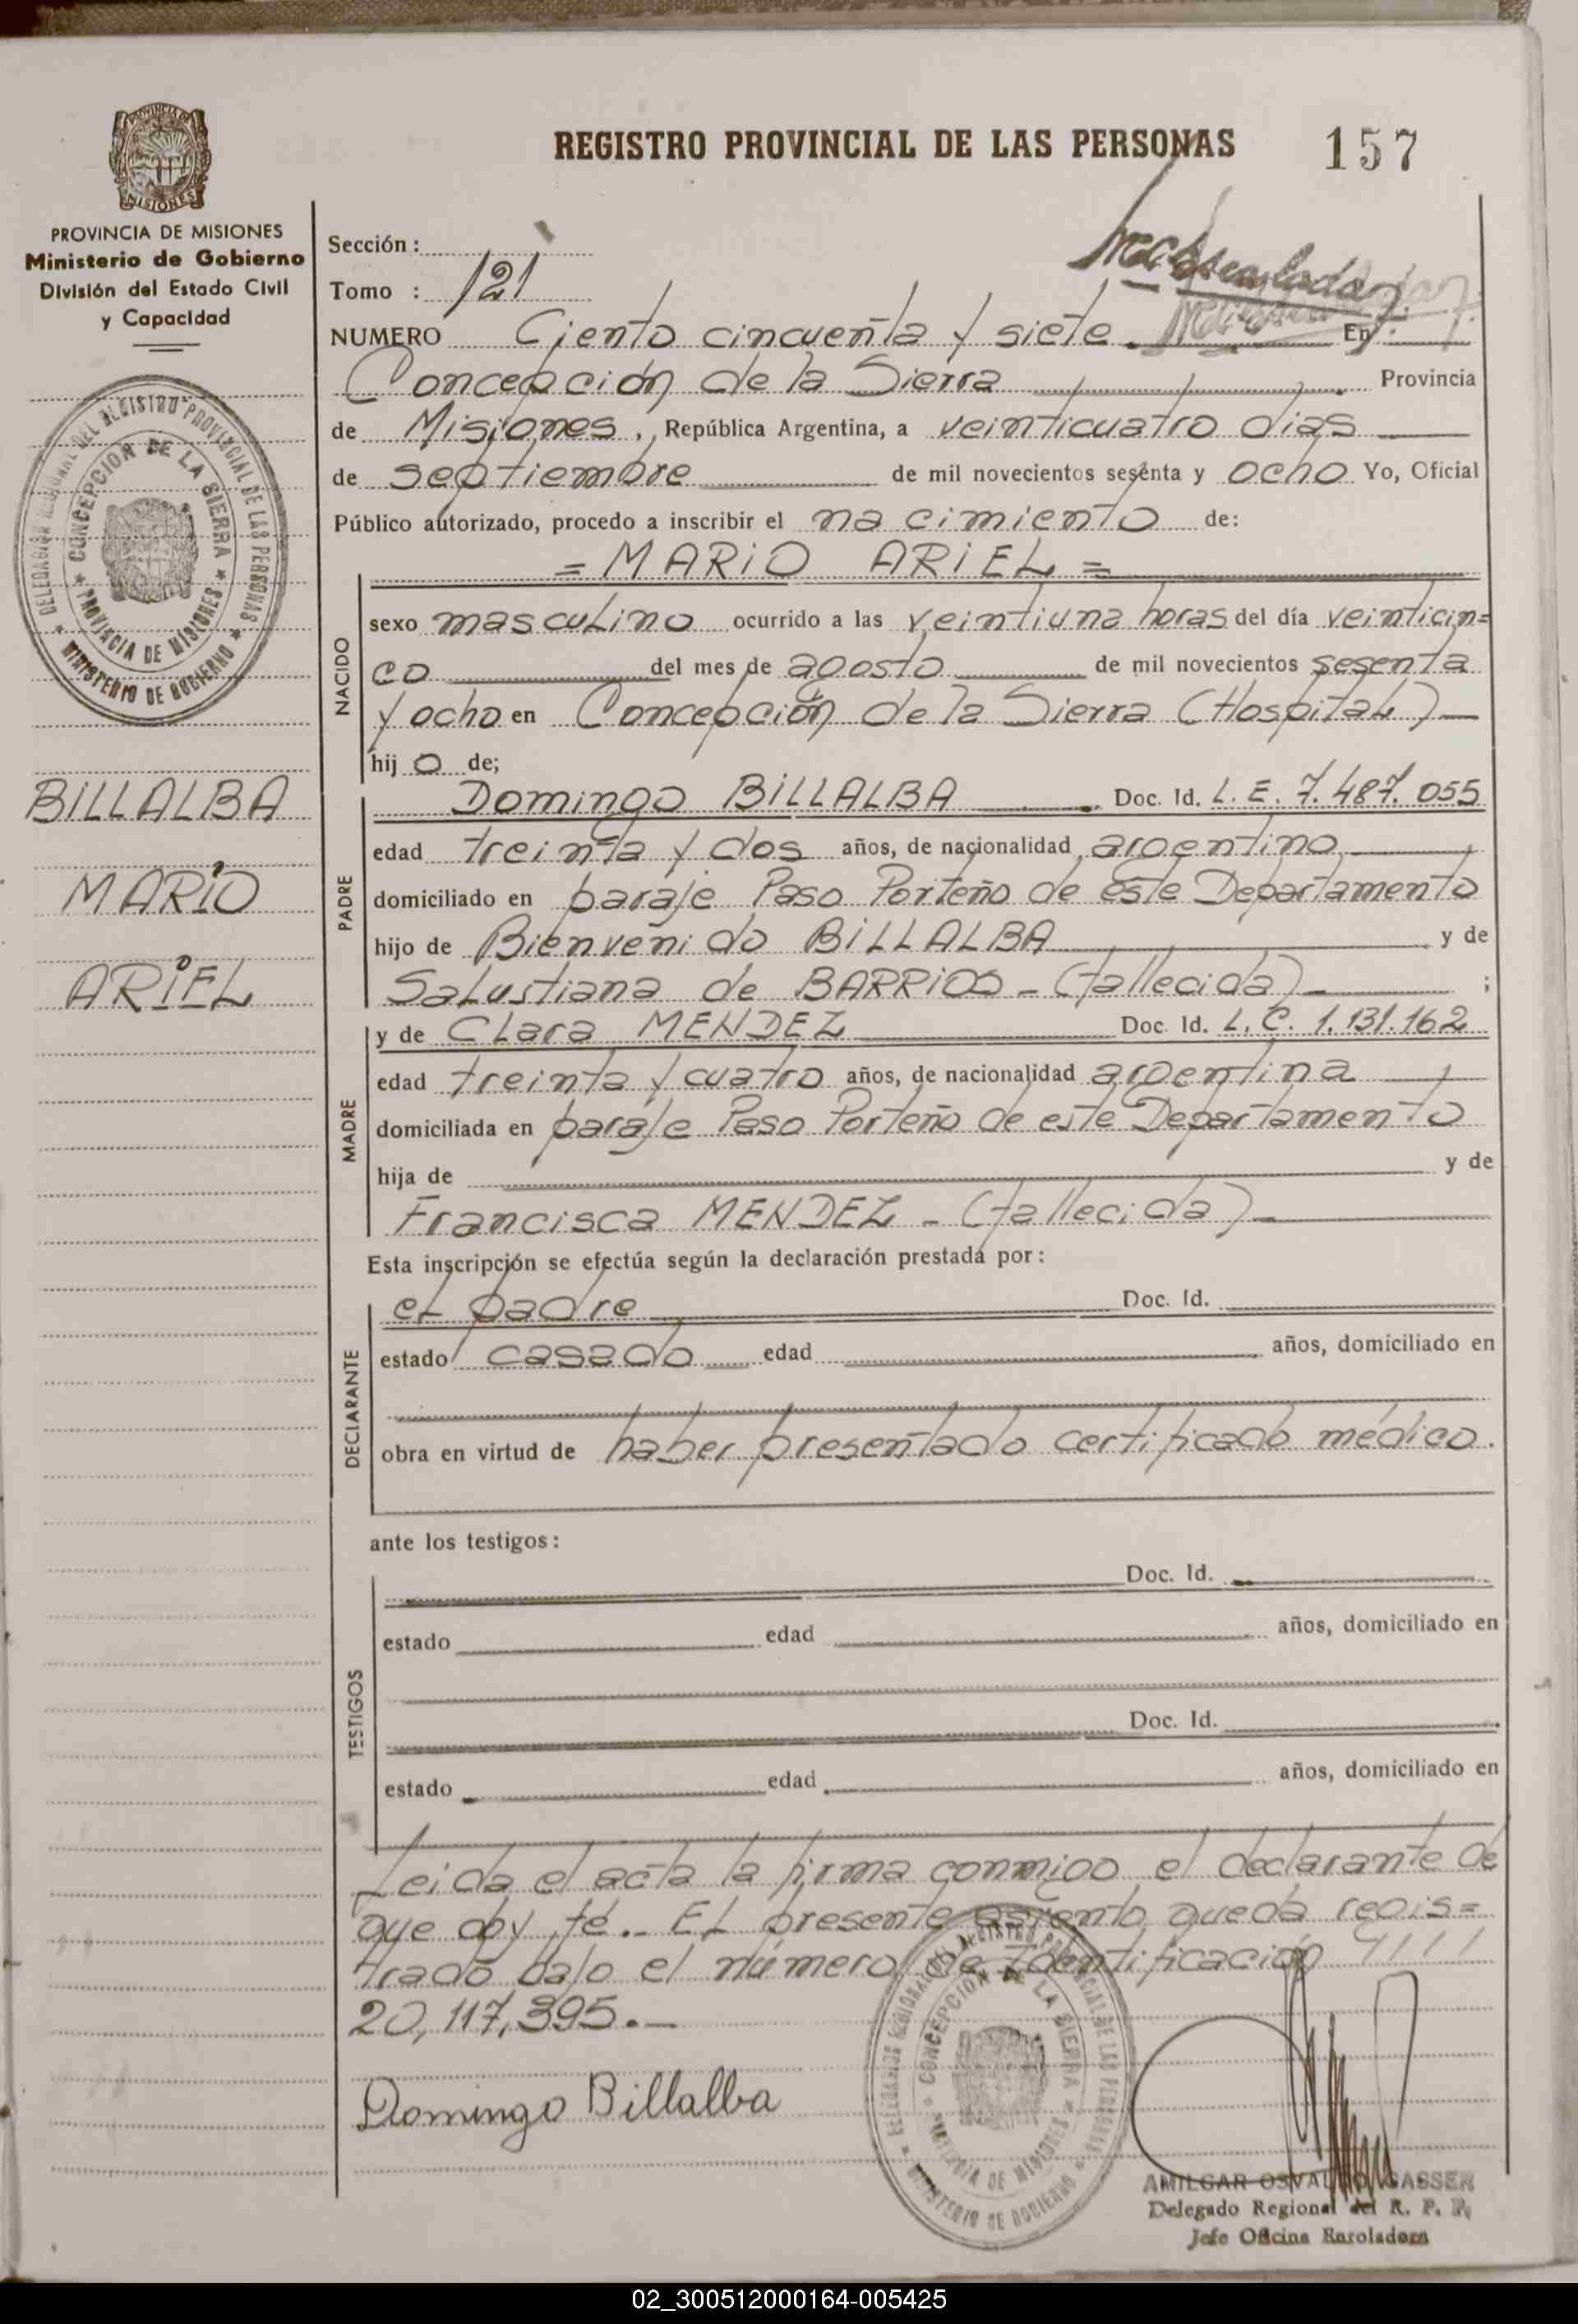 REGISTRO PROVINCIAL DE LAS PERSONAS 157
PROVINCIA DE MISIONES
Ministerio de Gobierno
División del Estado Civil
y Capacidad
Sección :
Tomo : 121
NUMERO Ciento cincuenta y siete. En
Concepción de la Sierra Provincia
de Misiones, República Argentina, a veinticuatro dias
de septiembre de mil novecientos sesenta y ocho Yo, Oficial
Público autorizado, procedo a inscribir el nacimiento de:
= MARIO ARIEL =
NACIDO
sexo masculino ocurrido a las veintiuna horas del día veinticin=
co del mes de agosto de mil novecientos sesenta
y ocho en Concepción de la Sierra (Hospital)
hijo de;
BILLALBA
MARIO
ARIEL
PADRE
Domingo BILLALBA Doc. Id. L. E. 7.487.055
edad treinta y dos años, de nacionalidad argentino
domiciliado en paraje Paso Porteño de este Departamento
hijo de Bienvenido BILLALBA y de
Salustiana de BARRIOS - (fallecida) ;
MADRE
y de Clara MENDEZ Doc. Id. L. C. 1.131.162
edad treinta y cuatro años, de nacionalidad argentina
domiciliada en paraje Paso Porteño de este Departamento
hija de y de
Francisca MENDEZ - (fallecida)
Esta inscripción se efectúa según la declaración prestada por :
DECLARANTE
el padre Doc. Id.
estado casado edad años, domiciliado en
obra en virtud de haber presentado certificado médico.
ante los testigos :
TESTIGOS
Doc. Id.
estado edad años, domiciliado en
Doc. Id.
estado edad años, domiciliado en
Leida el acta la firma conmigo el declarante de
que doy fé.- El presente asiento queda regis=
trado bajo el número de Identificación
20,117,395.-
Domingo Billalba
DELEGACIÓN REGIONAL DEL REGISTRO PROVINCIAL DE LAS PERSONAS
CONCEPCION DE LA SIERRA
PROVINCIA DE MISIONES
MINISTERIO DE GOBIERNO
AMILCAR OSVALDO GASSER
Delegado Regional del R. P. P.
Jefe Oficina Enroladora
02_300512000164-005425